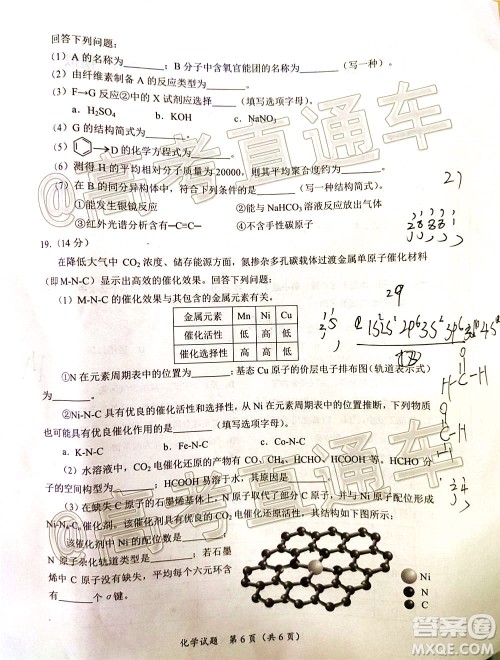 回答下列问题：
(1) A 的名称为______；B 分子中含氧官能团的名称为______（写一种）。
(2) 由纤维素制备 A 的反应类型为______。
(3) F→G 反应②中的 X 试剂应选择____（填写选项字母）。
a. H₂SO₄ b. KOH c. NaNO₃
(4) G 的结构简式为______。
(5) → D 的化学方程式为______。
(6) 测得 H 的平均相对分子质量为 20000，则其平均聚合度约为______。
(7) 在 B 的同分异构体中，符合下列条件的是______（写一种结构简式）。
①能发生银镜反应 ②能与 NaHCO₃ 溶液反应放出气体
③红外光谱分析含有 ─C═C─ ④不含手性碳原子
19.（14 分）
在降低大气中 CO₂ 浓度、储存能源方面，氮掺杂多孔碳载体过渡金属单原子催化材料
（即 M-N-C）显示出高效的催化效果。回答下列问题：
(1) M-N-C 的催化效果与其包含的金属元素有关。
金属元素 Mn Ni Cu
催化活性 低 高 低
催化选择性 低 高 高
①N 在元素周期表中的位置为______；基态 Cu 原子的价层电子排布图（轨道表示式）
为______。
②Ni-N-C 具有优良的催化活性和选择性，从 Ni 在元素周期表中的位置推断，下列物质
也可能具有优良催化作用的是______（填写选项字母）。
a. K-N-C b. Fe-N-C c. Co-N-C
(2) 水溶液中，CO₂ 电催化还原的产物有 CO、CH₄、HCHO、HCOOH 等，HCHO 分
子的空间构型为______；HCOOH 易溶于水，其原因是______。
(3) 在缺失 C 原子的石墨烯基体上，引入的部分 N 原子与 Ni 原子配位形成
Ni-N-C 催化剂，该催化剂具有优良的 CO₂ 电催化还原活性，其结构如下图所示。
该催化剂中 Ni 的配位数是______；
N 原子杂化轨道类型是______；若石墨
烯中 C 原子没有缺失，平均每个六元环含
有______个 σ 键。
Ni
N
C
化学试题 第 6 页（共 6 页）
@高考直通车
@高考直通车
答案圈
MXQE.COM
27
29